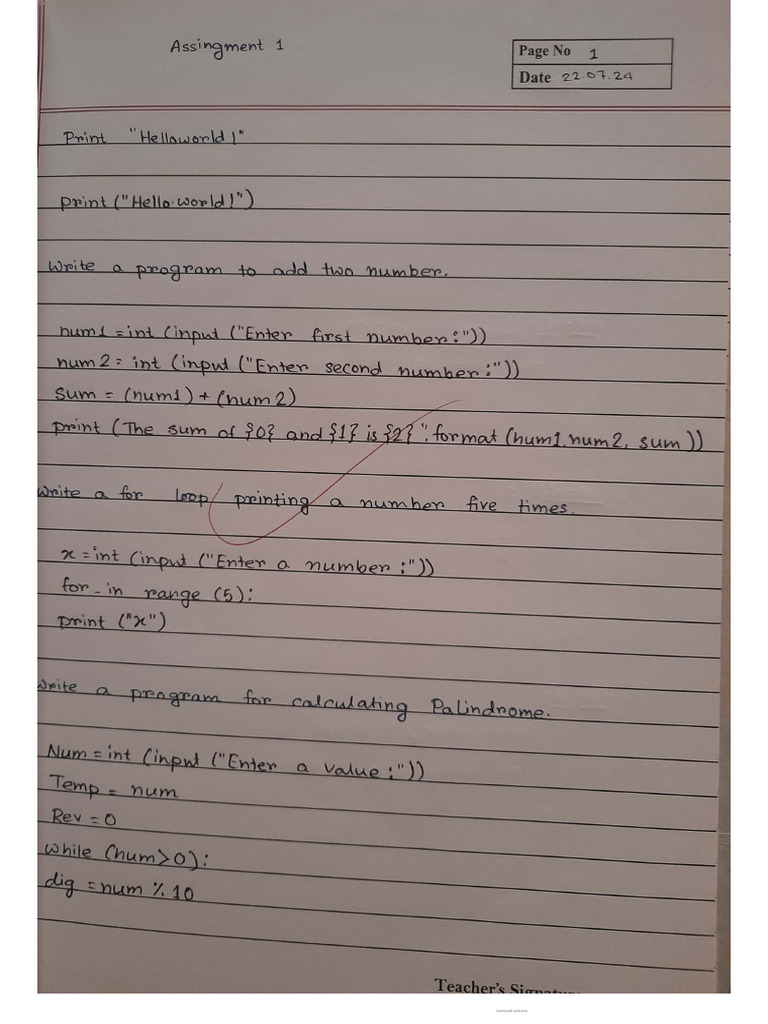 Assingment 1
Page No 1
Date 22.07.24
Print "Helloworld!"
print ("Hello.world!")
Write a program to add two number.
num1 = int (input ("Enter first number:"))
num2 = int (input ("Enter second number:"))
sum = (num1) + (num2)
print (The sum of {0} and {1} is {2}".format (num1.num2, sum))
Write a for loop printing a number five times.
x = int (input ("Enter a number:"))
for _ in range (5):
print ("x")
Write a program for calculating Palindrome.
Num = int (input ("Enter a value:"))
Temp = num
Rev = 0
while (num>0):
dig = num % 10
Teacher's